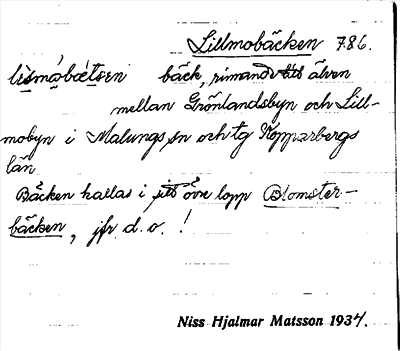 Lillmobäcken 786.
bäck, rinnande till älven
mellan Grönlandsbyn och Lill-
mobyn i Malungs sn och tg Kopparbergs
län.
Bäcken kallas i sitt övre lopp Blomster-
bäcken, jfr d. o. !
Niss Hjalmar Matsson 1934.